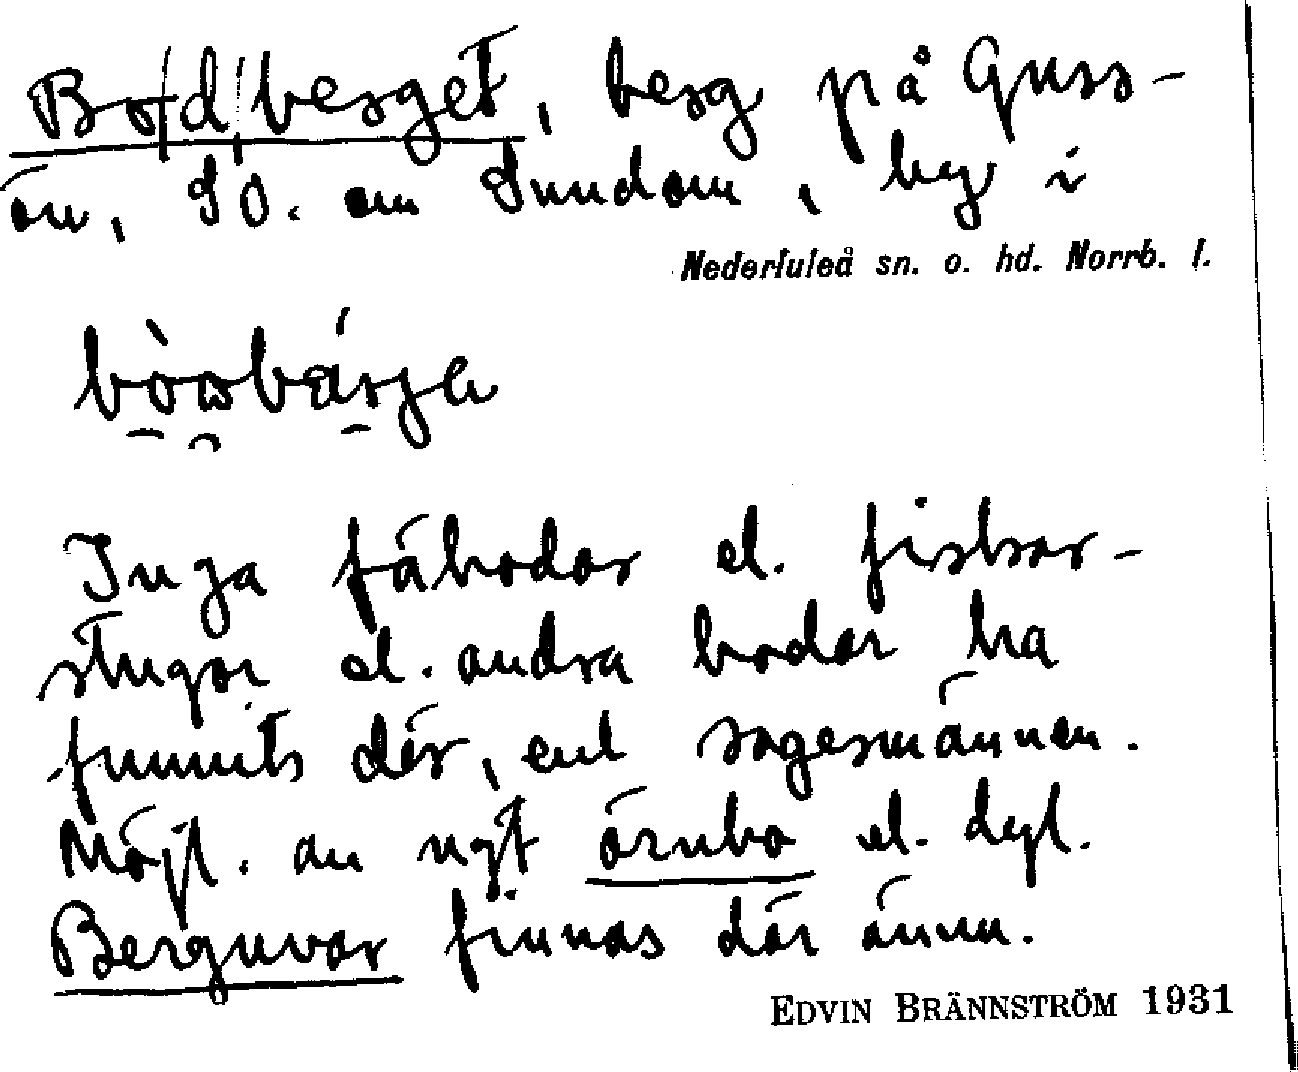 Bo|d|berget, berg på Guss-
ön, SO. om Sundom, by i
Nederluleå sn. o. hd. Norrb. l.
Inga fäbodar el. fiskar-
stugor el. andra bodar ha
funnits där, enl sagesmännen.
Möjl. av ngt örnbo el. dyl.
Berguvar finnas där ännu.
EDVIN BRÄNNSTRÖM 1931